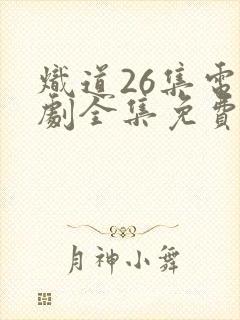 熾道26集電
劇全集免費
月神小舞